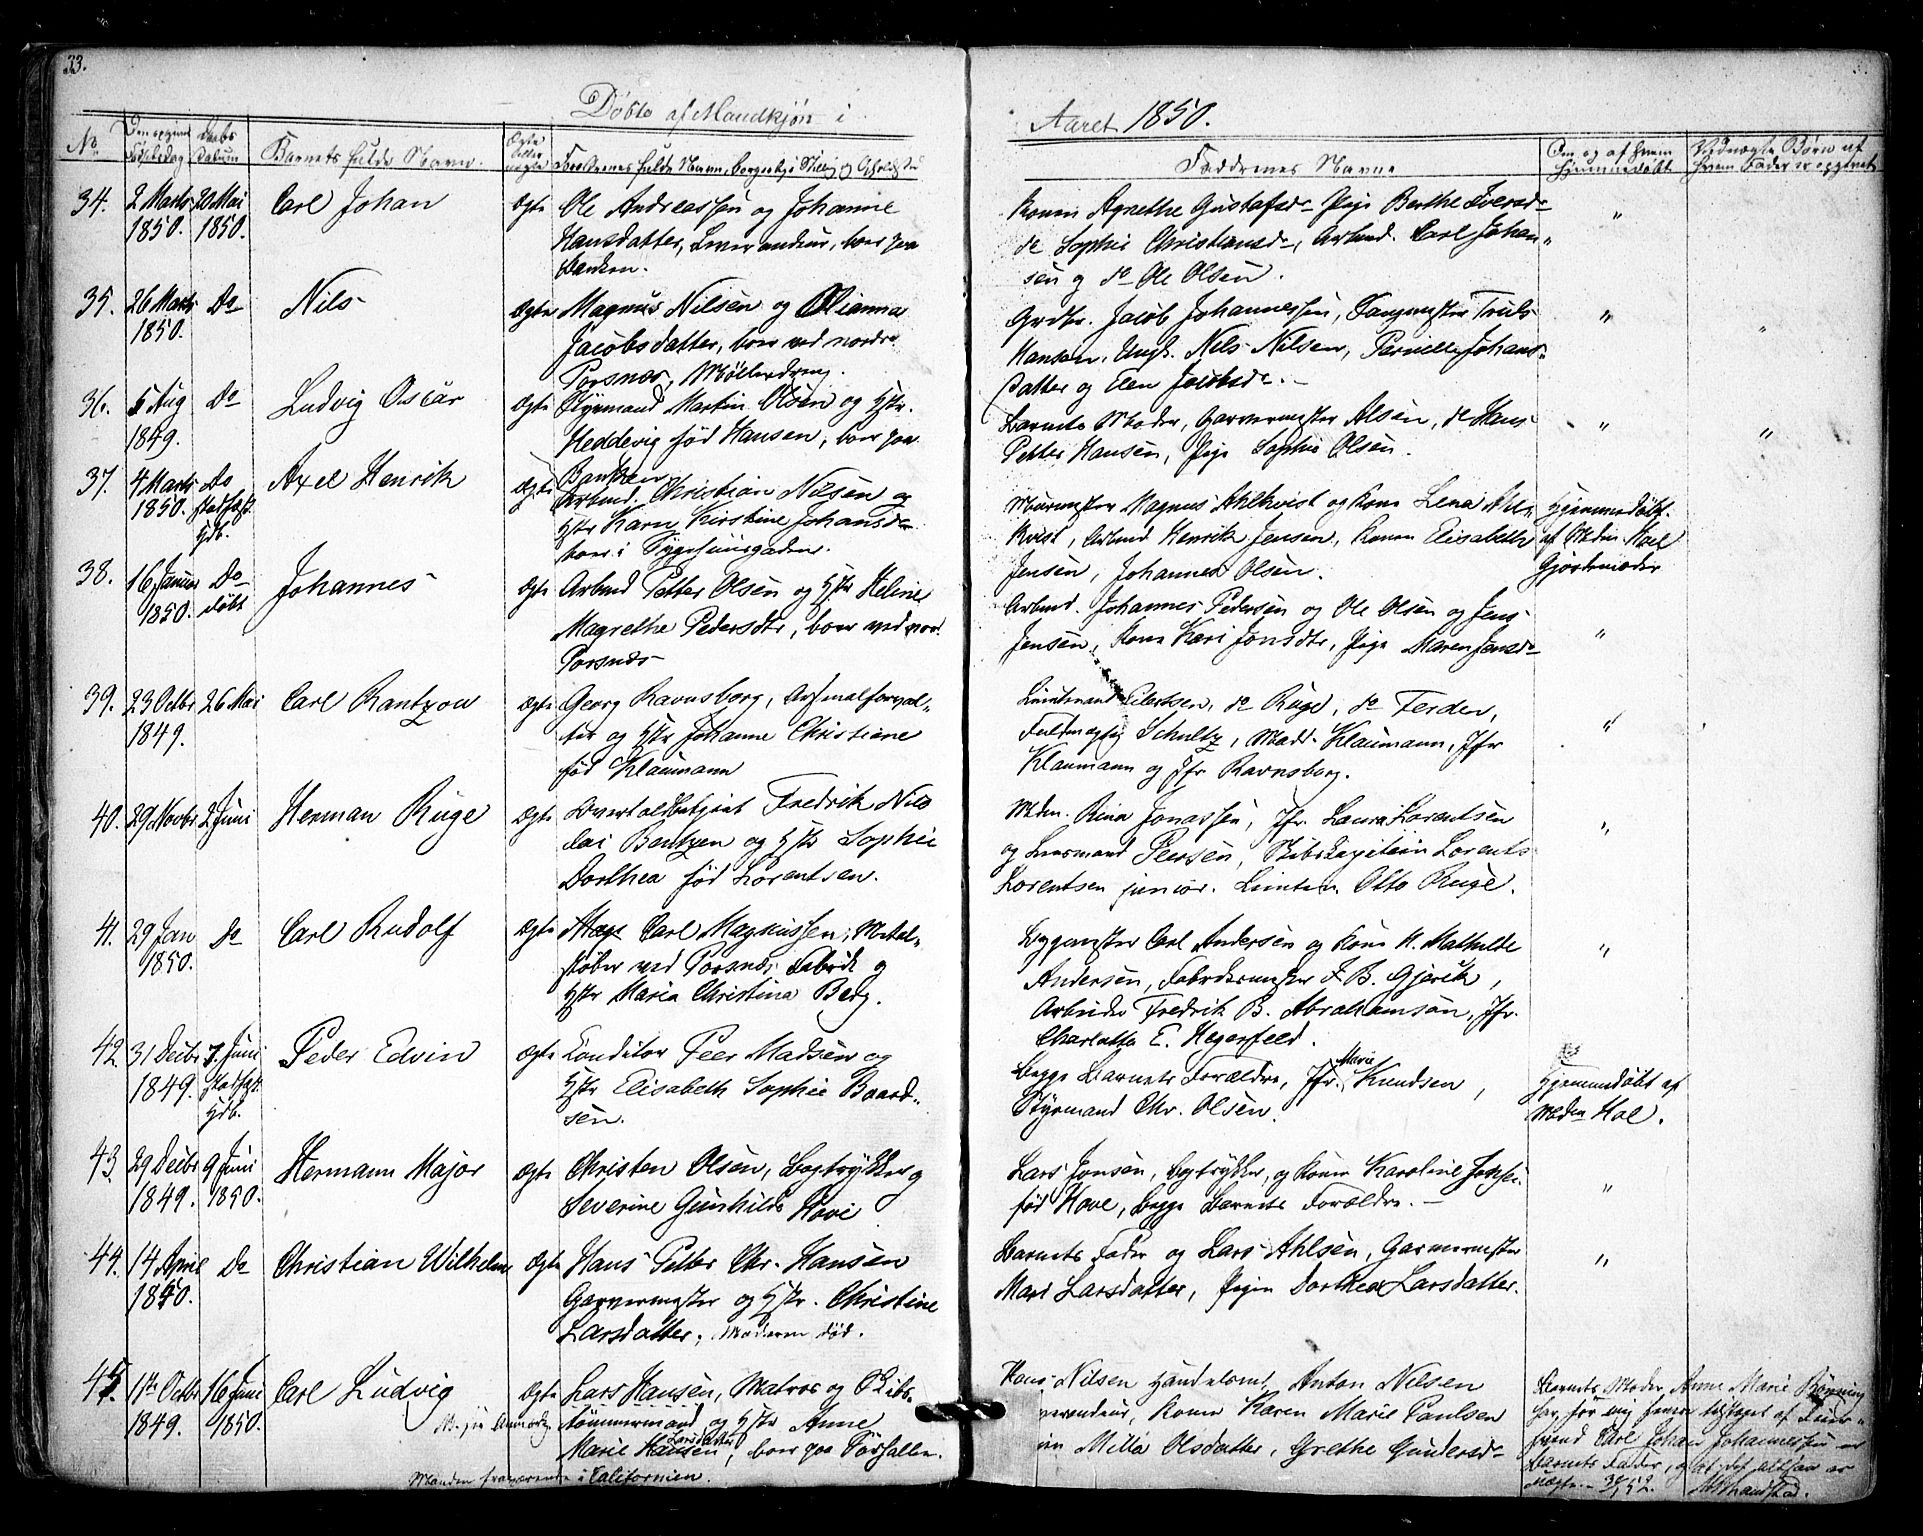 33.
Døbte af Mandkjøn i
Aaret 1850.
No.
Barnets fulde Navn.
Faddernes Navne
34. 2 Marts 1850. 20 Mai 1850. Carl Johan
Ægte Ole Andreassen og Johanne
Hansdatter, boer paa
Banken.
Konen Agnethe Gustafsd. Pige Berthe
do Sophie Christiansd., Arbmd. Carl Johan-
sen og do Ole Olsen.
35. 26 Marts 1850. Do Nils
Ægte Magnus Nilsen og
Jacobsdatter, boer ved nordre
Torsnæs, Møllerdreng.
Jacob Johannessen, Truls
Hansen, Ungk. Nils Nilsen, Pernelle Johans-
datter og Elen Jacobsd.
36. 5 Aug 1849. Do Ludvig Oscar
Ægte Styrmand Martin Olsen og Hstr.
Heddevig fød Hansen, boer paa
Banken
Barnets Moder, Garvermester Alsen, do Hans
Petter Hansen, Pige Sophie Olsen.
37. 4 Marts 1850. Do stadfæst. Hjdb. Axel Henrik
Ægte Arbmd. Christian Nilsen og
Hstr Karn Kirstine Johansd.
boer i Sygehuusgaden.
Murmester Magnus Ahlkvist og Kone Lena Ahl-
kvist, Arbmd Henrik Jensen, Konen Elisabeth
Jensen, Johannes Olsen.
Hjemmedøbt
af Mdm. Hoel
Gjordemoder
38. 16 Januar 1850. Do døbt Johannes
Ægte Arbmd Petter Olsen og Hstr Heline
Magrethe Pedersdtr, boer ved nor.
Torsnæs
Arbmd. Johannes Pedersen og Ole Olsen og Jens
Jensen, Kone Kari Jonsdtr, Pige Maren Jensd.
39. 23 Octbr 1849. 26 Mai Carl Rantzou
Ægte Georg Ravnsborg, Arsenalforval-
ter og Hstr Johanne Christiane
fød Klaumann
Lieutenand Eilertsen, do Ruge, do Ferden,
Fuldmægtig Schultz, Mad. Klaumann, Jfr
Klaumann og Jfr Ravnsborg.
40. 29 Novbr 2 Juni Herman Ruge
Ægte Overtoldbetjent Fredrik Nico
lai Bentzen og Hstr Sophie
Dorthea fød Lorentsen.
Mdm. Rina Jonassen, Jfr. Laura Lorentsen
og Peersen, Skibskapitain Lorents
Lorentsen junior. Lieuten. Otto Ruge.
41. 29 Jan 1850. Do Carl Rudolf
Ægte Carl Magnussen, Metal-
støber ved Torsnæs Fabrik og
Hstr Maria Christina Berg.
Bygmester Carl Andersen og Kone M. Mathilde
Andersen, Fabrikmester F. B. Gjørik,
Arbeider Fredrik B. Abrahamson, Jfr.
Charlotte E. Hegerfeld.
42. 31 Decbr 1849. 7. Juni stadfæst. Hjdb. Peder Edvin
Ægte Conditor Peer Madsen og
Hstr Elisabeth Sophie Baard-
sen.
Begge Barnets Forældre, Jfr. Marie Knudsen,
Styrmand Chr. Olsen.
Hjemmedøbt af
Mdm Hoel.
43. 29 Decbr 1849. 9 Juni 1850. Hermann Major
Ægte Christen Olsen, Bogtrykker og
Severine Gunhilde Hove
Lars Jonsen, Bogtrykker, og Konen Karoline
fød Hove, begge Barnets Forældre.
44. 14 April 1850. Do Christian Wilhelm
Ægte Hans Petter Chr. Hansen
Garvermester og Hstr. Christine
Larsdatter, Moderen død.
Barnets Fader og Lars Ahlsen, Garvermester
Mari Larsdatter, Pigen Dorthea Larsdatter.
45. 11te Octbr 1849. 16 Juni 1850. Carl Ludvig
Ægte Lars Hansen, Matros og Skibs
tømmermand og Hstr Anne
Marie Larsdatter, boer paa Sørhallen.
Manden fraværende i Californien.
Hans Nilsen Handelsmd, Anton Nilsen
Kone Karen Marie Paulsen
Milla Olsdatter, Grethe Gundersd.
Barnets Moder, Anne Marie
har for mig
Carl Johan Johannessen er
Barnets Fader, og at det altsaa er
uægte. 3/52.